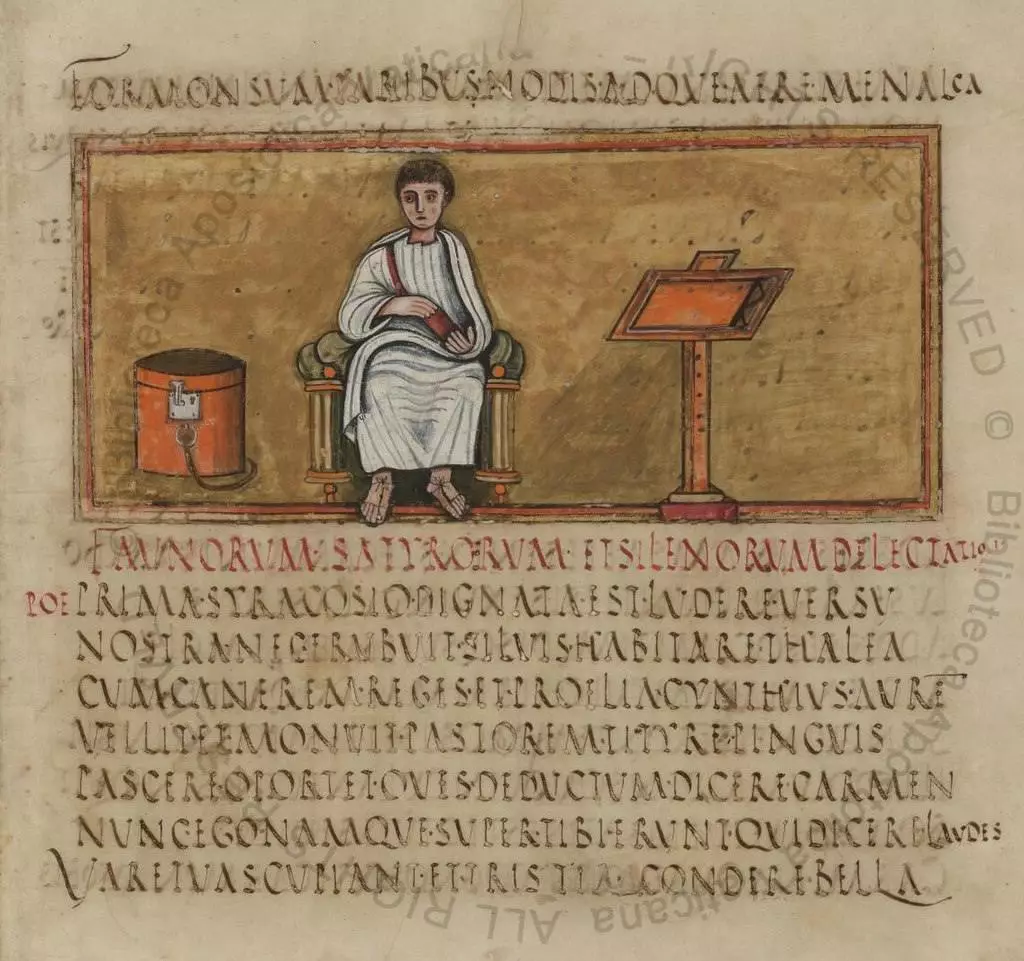 FORMONSVM·PARIBVS·NODIS·ADQVE·AERE MENALCA
FAVNORVM·SATYRORVM·ET SILENORVM·DELECTATIO
POE PRIMA·SYRACOSIO·DIGNATA·EST·LVDERE·VERSV
NOSTRA·NEC·ERVBVIT·SILVIS·HABITARE·THALEA
CVM·CANEREM·REGES·ET·PROELIA·CYNTHIVS·AVRE
VELLIT·ET·MONVIT·PASTOREM·TITYRE·PINGVIS
PASCERE·OPORTET·OVES·DEDVCTVM·DICERE·CARMEN
NVNC·EGO·NAMQVE·SVPER·TIBI·ERVNT·QVI·DICERE·LAVDES
VARE·TVAS·CVPIANT·ET·TRISTIA·CONDERE·BELLA
RESERVED © Biblioteca